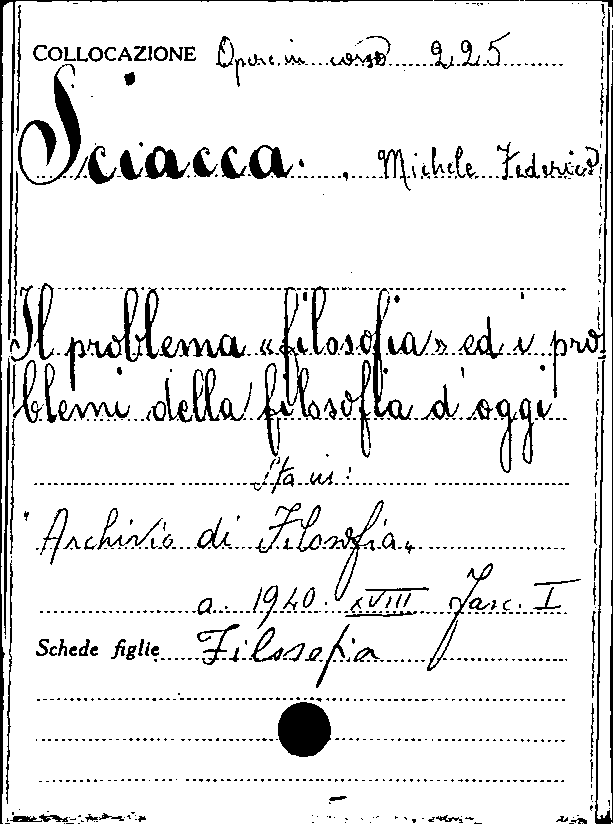 COLLOCAZIONE Opere in corso 225
Sciacca. , Michele Federico
Il problema «filosofia» ed i pro
blemi della filosofia d'oggi
Sta in:
"Archivio di Filosofia„
a. 1940. XVIII Fasc. I
Schede figlie Filosofia